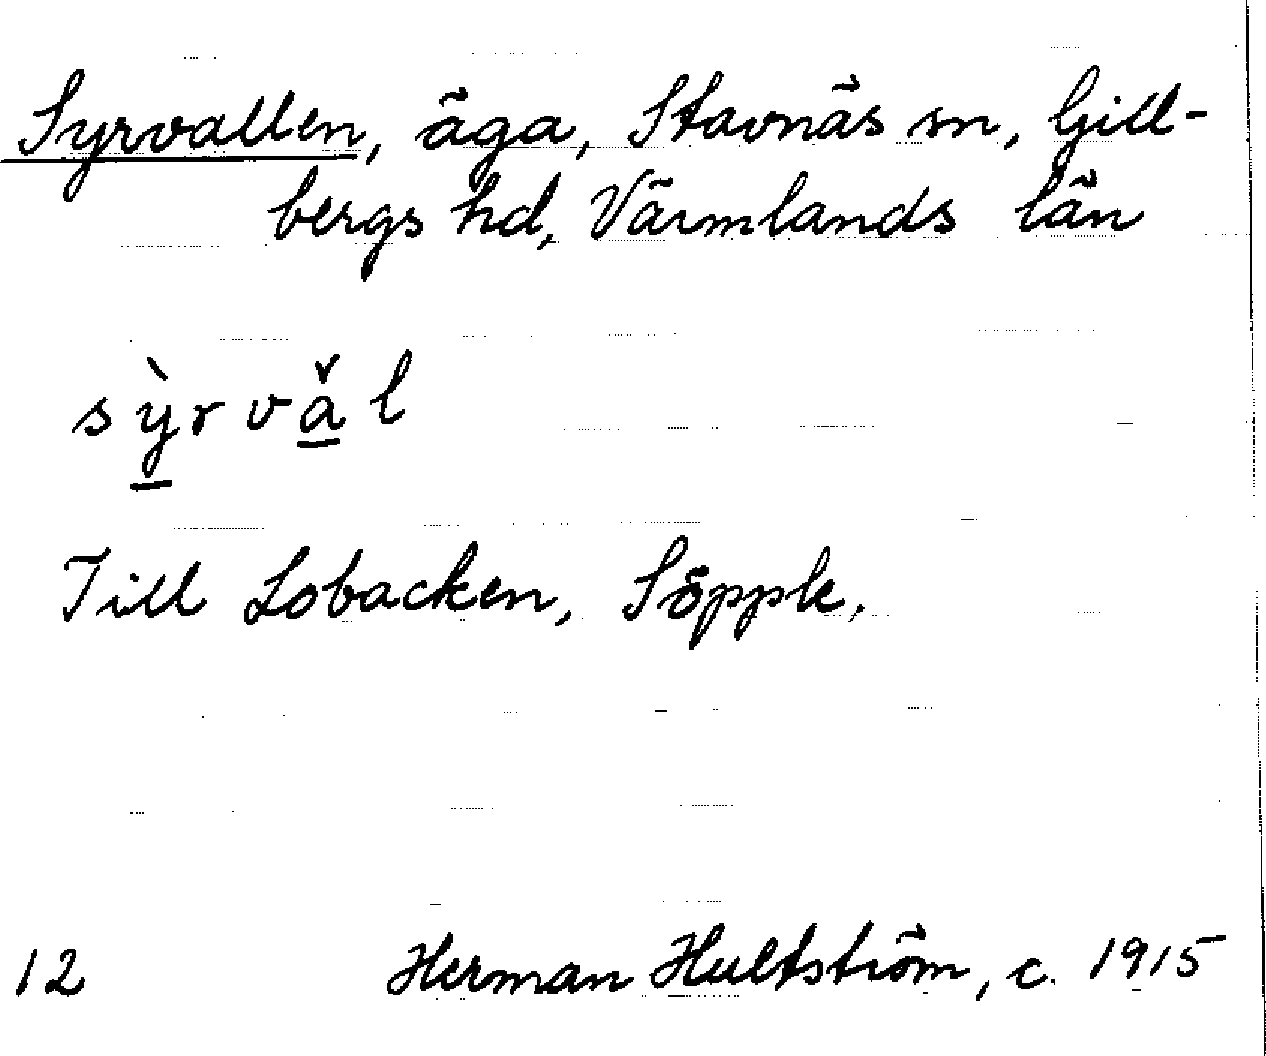 Syrvallen, äga, Stavnäs sn, Gill-
bergs hd, Värmlands län
sỳ̲rvǎ̲l
Till Lobacken, Söpple.
12 Herman Hultström, c. 1915